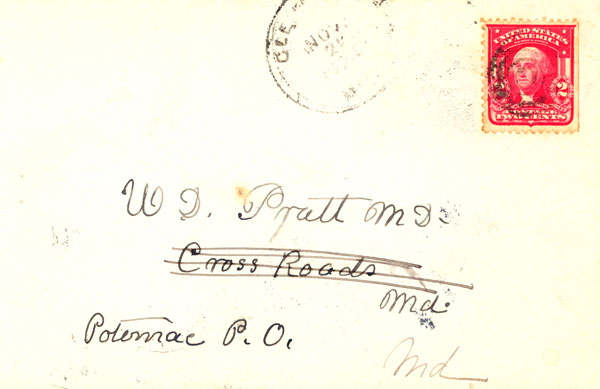 NOV
UNITED STATES
OF AMERICA
2
POSTAGE
TWO CENTS
W D. Pratt MD
Cross Roads
Md.
Potomac P. O.
Md